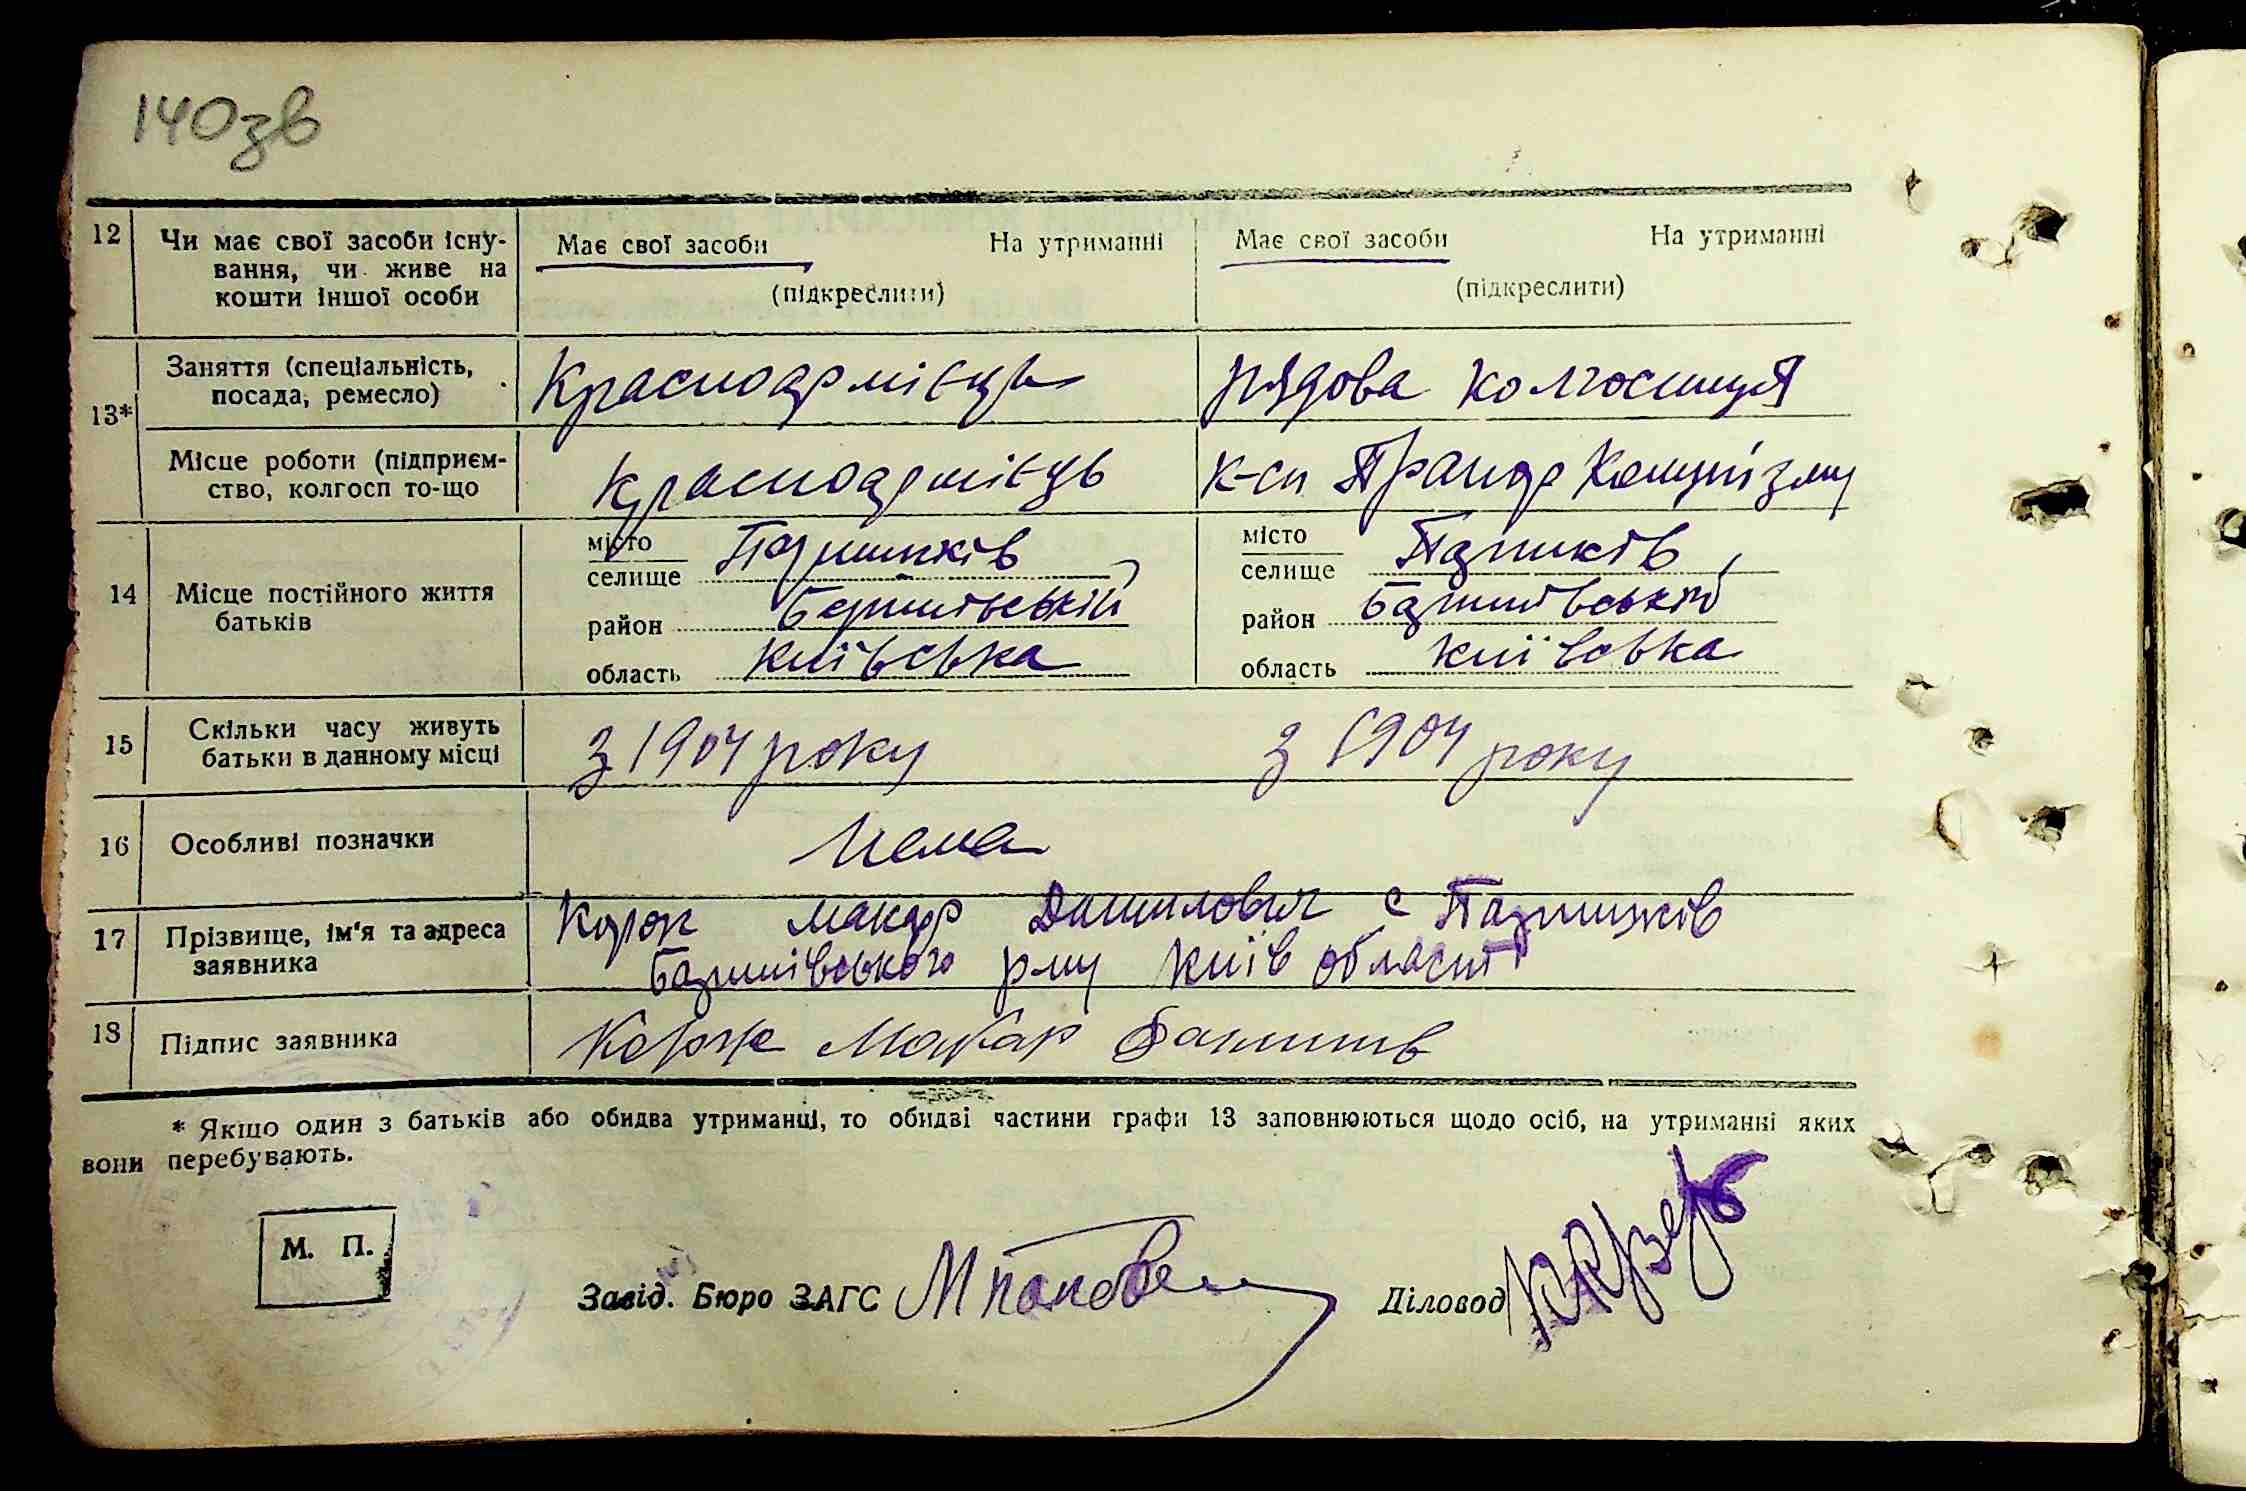 140зв
12 Чи має свої засоби існу-
вання, чи живе на
кошти іншої особи
Має свої засоби На утриманні
(підкреслити)
Має свої засоби На утриманні
(підкреслити)
13* Заняття (спеціальність,
посада, ремесло)
Красноармієць
рядова колгоспниця
Місце роботи (підприєм-
ство, колгосп то-що
Красноармієць
к-сп Прапор Комунізму
14 Місце постійного життя
батьків
місто
селище Паришків
район
область Київська
місто
селище
район Баришівській
область Київська
15 Скільки часу живуть
батьки в данному місці
з 1904 року з 1904 року
16 Особливі позначки
Нема
17 Прізвище, ім'я та адреса
заявника
Корж Макар Данилович с Паришків
Баришівського р-ну Київ області
18 Підпис заявника
Корж Макар
* Якщо один з батьків або обидва утриманці, то обидві частини графи 13 заповнюються щодо осіб, на утриманні яких
вони перебувають.
М. П.
Завід. Бюро ЗАГС
Діловод